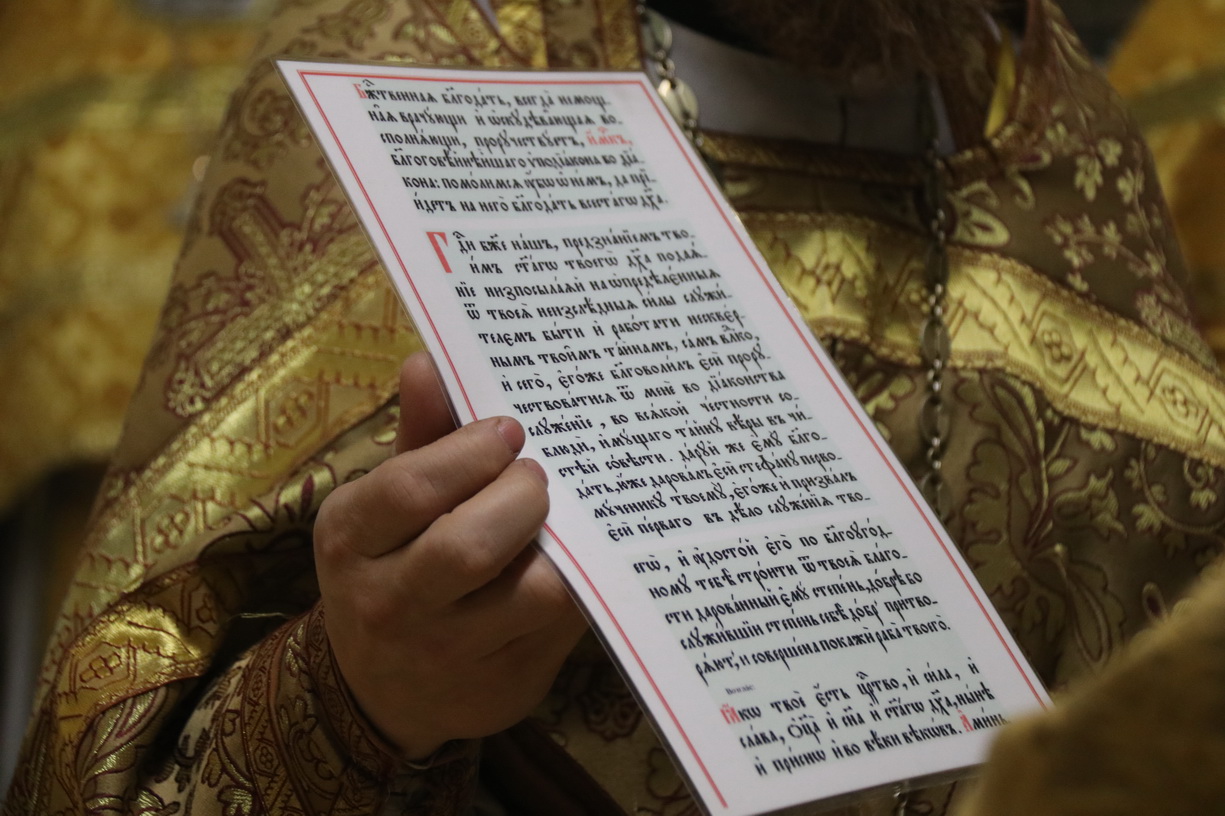 Бжⷭ҇твеннаѧ бл҃года́ть, всегда̀ немощ-
на̑ѧ врачꙋ́ющи и҆ ѡ҆скꙋдѣва́ющаѧ во-
сполнѧ́ющи, прорꙋ́чествꙋетъ, и҆́м҃къ,
бл҃гоговѣ́йнѣйшаго ѵ҆подїа́кона во дїа́-
кона: помо́лимсѧ ᲂу҆̀бѡ ѡ҆ не́мъ, да прї-
и́детъ на него̀ бл҃года́ть всест҃а́гѡ дх҃а.
Гдⷭ҇и бж҃е на́шъ, предзна́нїемъ тво-
и́мъ ст҃а́гѡ твоегѡ̀ дх҃а пода́ѧ-
нїе низпосыла́ѧй на ѡ҆предѣлє́нныѧ
ѿ твоеѧ̀ неизслѣ́дныѧ си́лы слꙋжи́-
телємъ бы́ти и҆ рабо́тати нескве́р-
нымъ твои̑мъ та́йнамъ, са́мъ влⷣко,
и҆ сего̀, є҆го́же бл҃говоли́лъ є҆сѝ прорꙋ-
че́ствоватисѧ ѿ менє̀ во дїа́конства
слꙋже́нїе, во всѧ́кой че́стности со-
блюдѝ, и҆мꙋ́щаго та́йнꙋ вѣ́ры въ чи́-
стѣй со́вѣсти. да́рꙋй же є҆мꙋ̀ бл҃го-
да́ть, ю҆́же дарова́лъ є҆сѝ стефа́нꙋ перво-
мꙋ́ченикꙋ твоемꙋ̀, є҆го́же и҆ призва́лъ
є҆сѝ пе́рваго въ дѣ́ло слꙋже́нїѧ тво-
егѡ̀, и҆ ᲂу҆досто́й є҆го̀ по бл҃гоꙋго́д-
номꙋ тебѣ̀ стро́ити ѿ твоеѧ̀ бл҃го-
сти дарова́нный є҆мꙋ̀ сте́пень, до́брѣ бо
слꙋжи́вшїи сте́пень себѣ̀ до́бръ притво-
рѧ́ютъ, и҆ соверше́на покажѝ раба̀ твоего̀.
Возглас:
Ꙗ҆́кѡ твоѐ є҆́сть црⷭ҇тво, и҆ си́ла, и҆
сла́ва, ѻ҆ц҃а̀ и҆ сн҃а и҆ ст҃а́гѡ дх҃а, ны́нѣ
и҆ при́снѡ и҆ во вѣ́ки вѣкѡ́въ. А҆ми́нь.